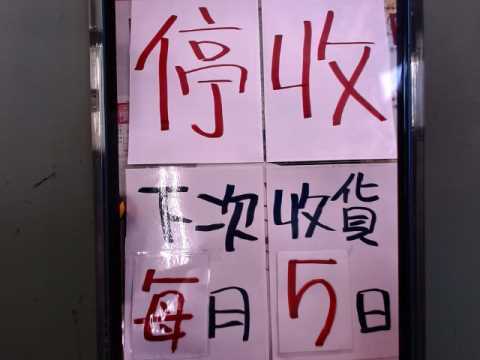 停收
下次收貨
每月5日